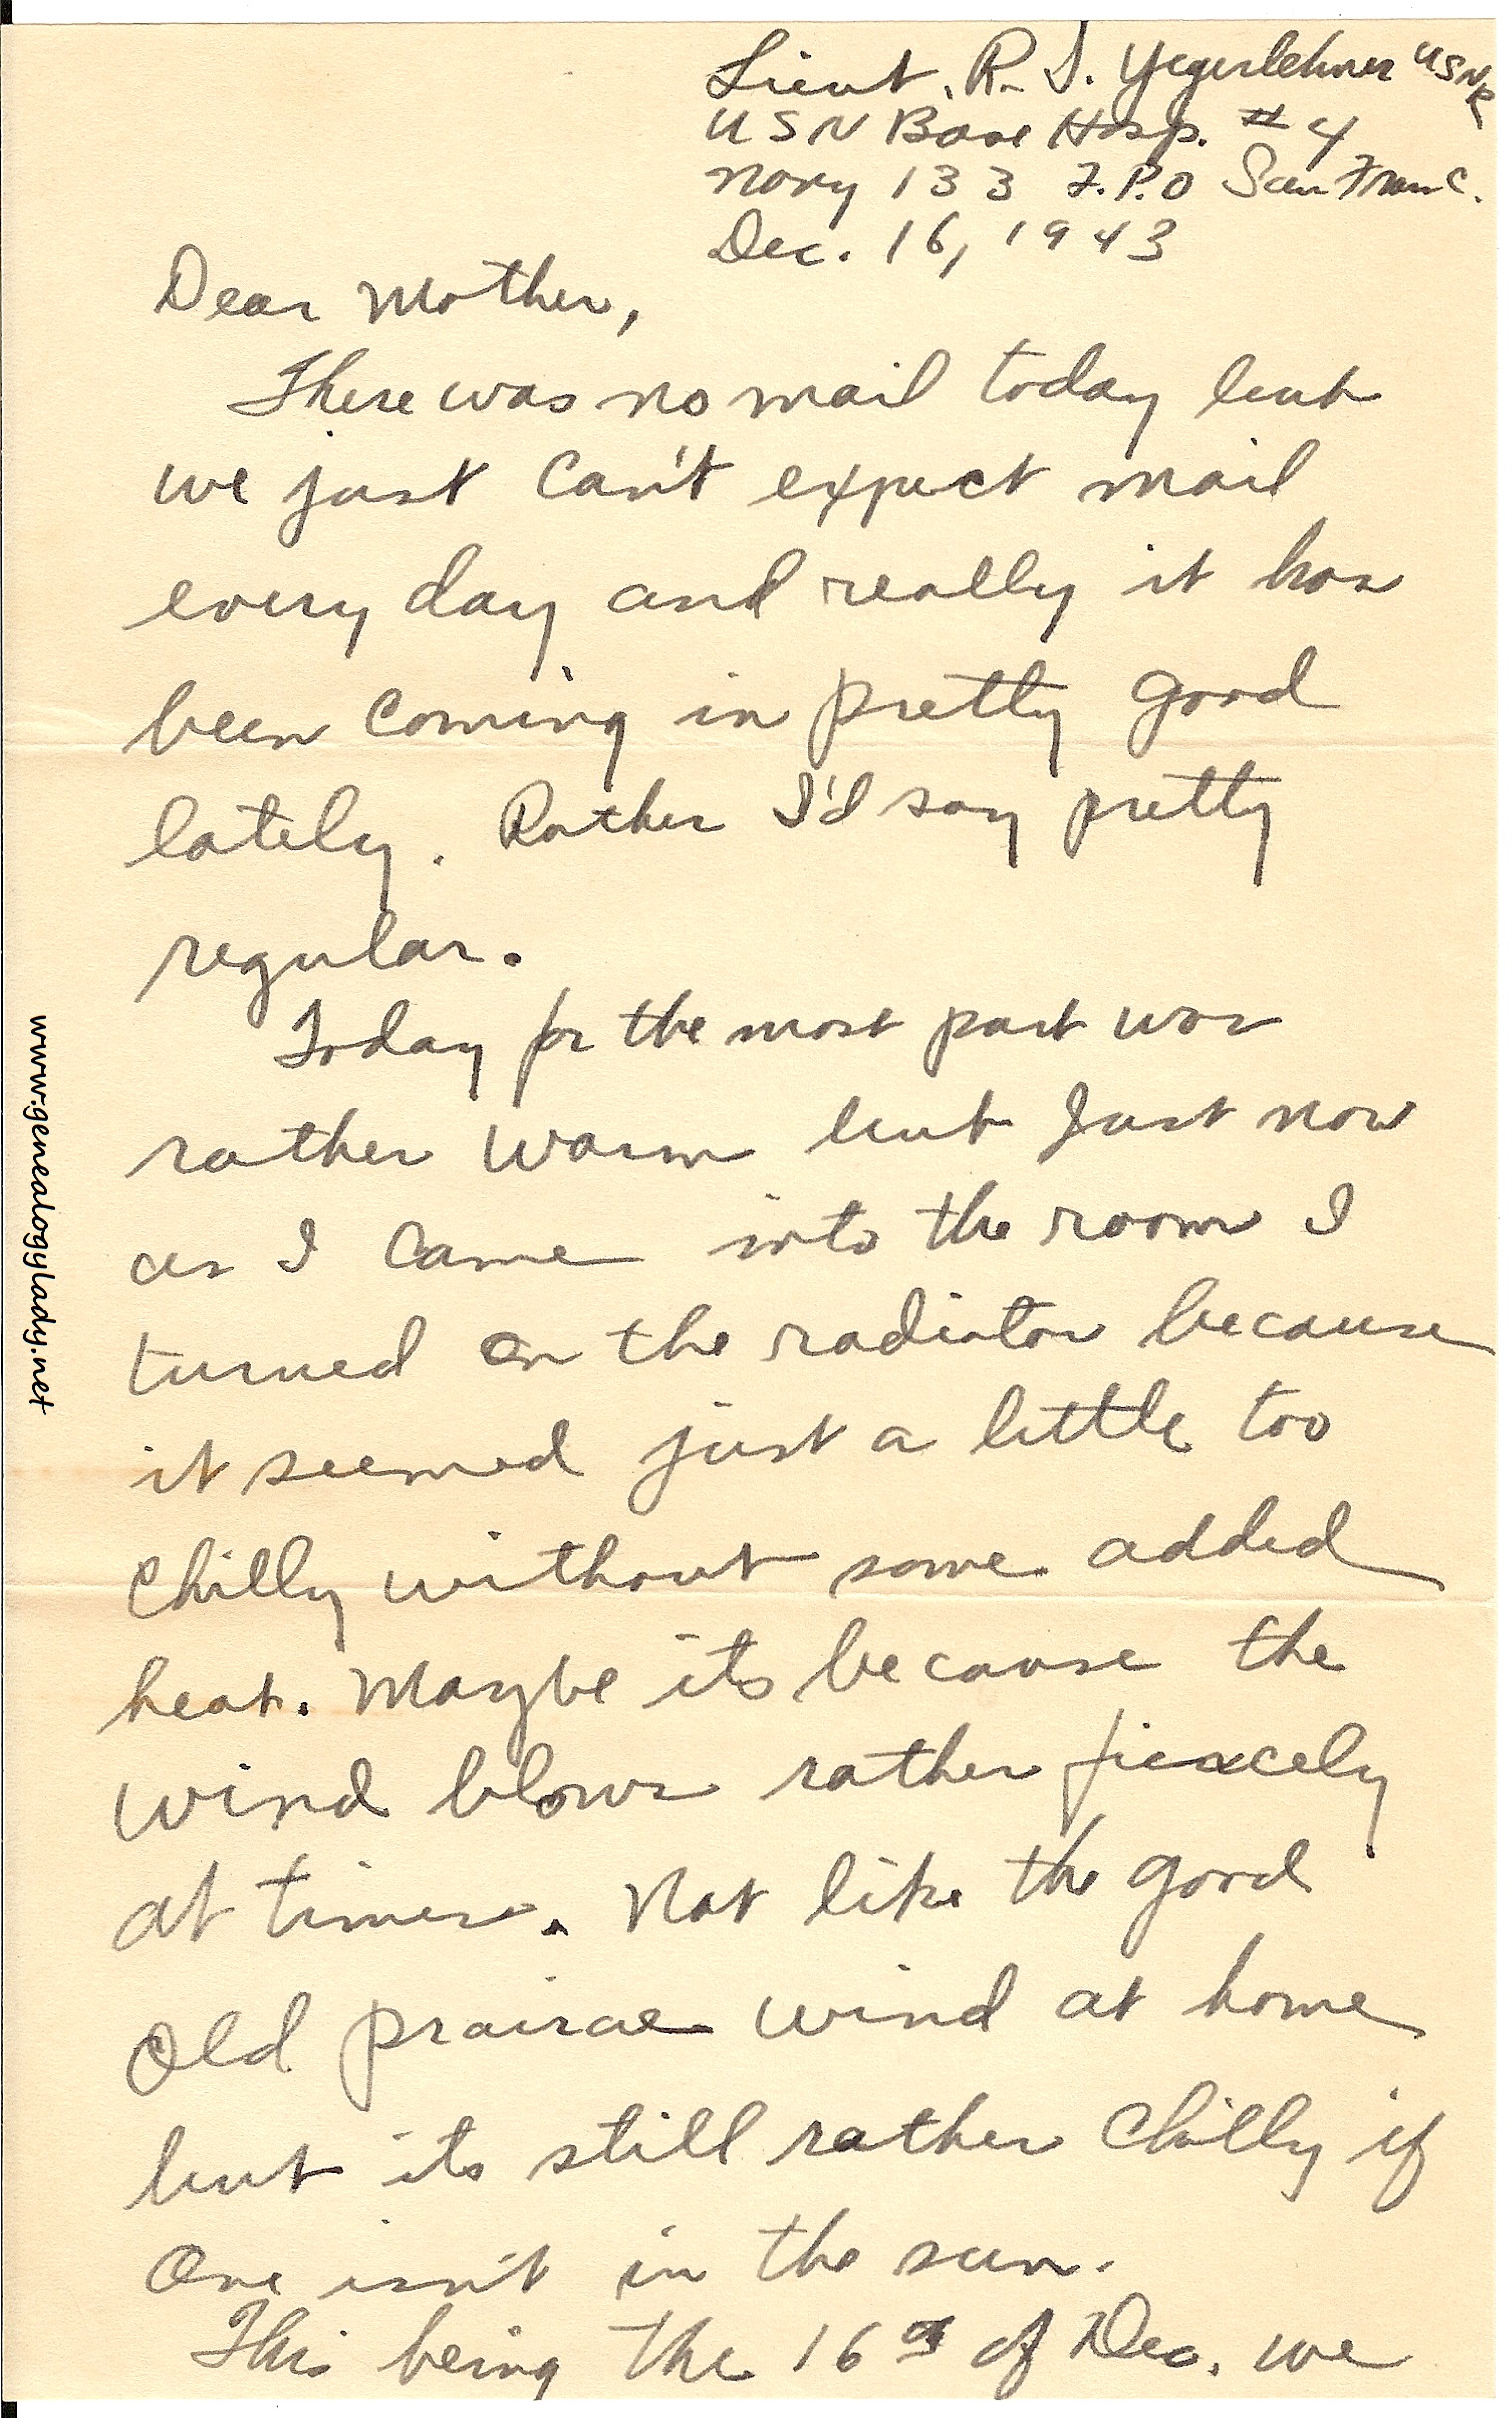 Lieut. R. S. Yegerlehner USNR
USN Base Hosp. #4
Navy 133 F.P.O San Franc.
Dec. 16, 1943
Dear Mother,
There was no mail today but
we just can't expect mail
every day and really it has
been coming in pretty good
lately. Rather I'd say pretty
regular.
Today for the most part was
rather warm but just now
as I came into the room I
turned on the radiator because
it seemed just a little too
chilly without some added
heat. Maybe its because the
wind blows rather fiercely
at times. Not like the good
old prairae wind at home
but its still rather chilly if
one isn't in the sun.
This being the 16th of Dec. we
www.genealogylady.net